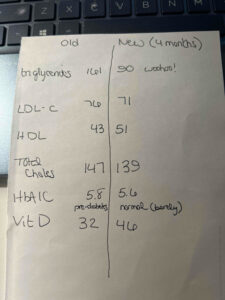 Old New (4 months)
triglycerides 161 90 woohoo!
LDL-C 76 71
HDL 43 51
Total Choles 147 139
HbA1C 5.8 5.6
pre-diabetes normal (barely)
Vit D 32 46